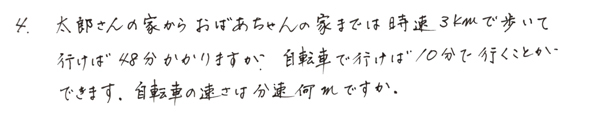 4. 太郎さんの家からおばあちゃんの家までは時速3kmで歩いて
行けば48分かかりますが、自転車で行けば10分で行くことが
できます。自転車の速さは分速何mですか。